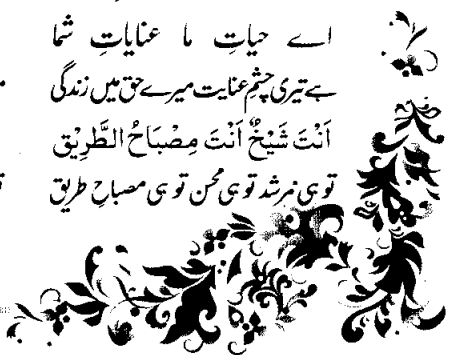 اے حیاتِ ما عنایاتِ شما
ہے تیری چشمِ عنایت میرے حق میں زندگی
اَنْتَ شَیْخٌ اَنْتَ مِصْبَاحُ الطَّرِیْق
تو ہی مرشد تو ہی محسن تو ہی مصباحِ طریق